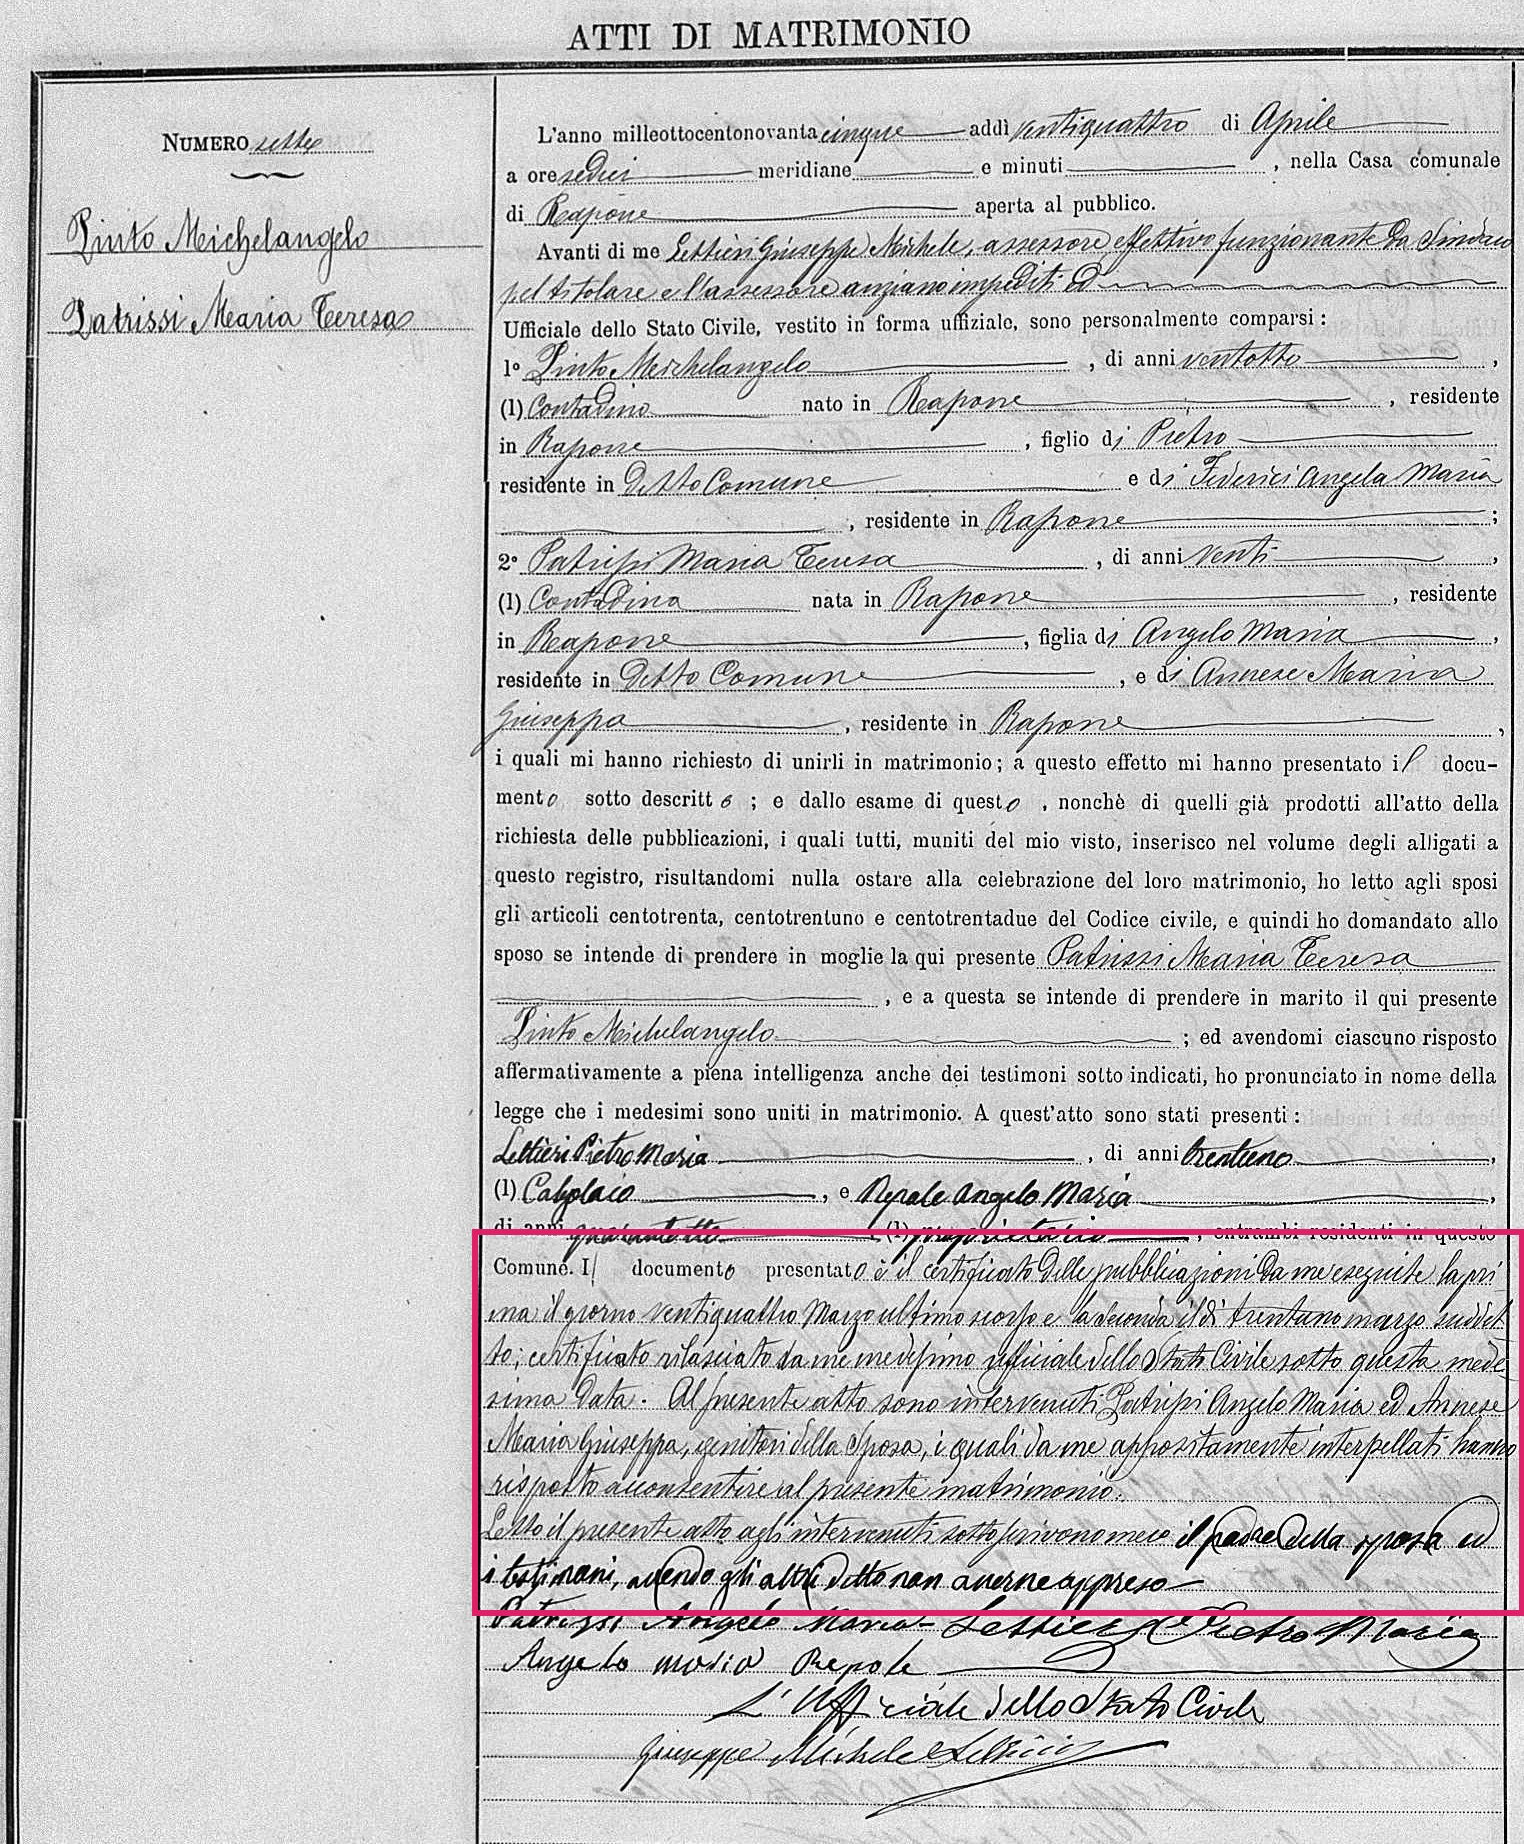 ATTI DI MATRIMONIO
NUMERO sette
Pinto Michelangelo
Patrissi Maria Teresa
L'anno milleottocentonovanta cinque addì ventiquattro di Aprile
a ore sedici meridiane e minuti , nella Casa comunale
di Rapone aperta al pubblico.
Avanti di me Lettieri Giuseppe Michele, assessore effettivo funzionante da Sindaco
pel titolare e l'assessore anziano impediti ed
Ufficiale dello Stato Civile, vestito in forma uffiziale, sono personalmente comparsi :
1° Pinto Michelangelo , di anni ventotto ,
(1) Contadino nato in Rapone , residente
in Rapone , figlio di Pietro
residente in detto Comune e di Federici Angela Maria
, residente in Rapone ;
2° Patrissi Maria Teresa , di anni venti ,
(1) Contadina nata in Rapone , residente
in Rapone , figlia di Angelo Maria ,
residente in detto Comune , e di Annese Maria
Giuseppa , residente in Rapone ,
i quali mi hanno richiesto di unirli in matrimonio ; a questo effetto mi hanno presentato il docu-
mento sotto descritto ; e dallo esame di questo , nonchè di quelli già prodotti all'atto della
richiesta delle pubblicazioni, i quali tutti, muniti del mio visto, inserisco nel volume degli alligati a
questo registro, risultandomi nulla ostare alla celebrazione del loro matrimonio, ho letto agli sposi
gli articoli centotrenta, centotrentuno e centotrentadue del Codice civile, e quindi ho domandato allo
sposo se intende di prendere in moglie la qui presente Patrissi Maria Teresa
, e a questa se intende di prendere in marito il qui presente
Pinto Michelangelo ; ed avendomi ciascuno risposto
affermativamente a piena intelligenza anche dei testimoni sotto indicati, ho pronunciato in nome della
legge che i medesimi sono uniti in matrimonio. A quest'atto sono stati presenti :
Lettieri Pietro Maria , di anni trentuno ,
(1) Calzolaio , e Repole Angelo Maria ,
di anni quarantotto (1) proprietario , entrambi residenti in questo
Comune. Il documento presentato è il certificato delle pubblicazioni da me eseguite la pri
ma il giorno ventiquattro Marzo ultimo scorso e la seconda il dì trentuno marzo suddet
to; certificato rilasciato da me medesimo ufficiale dello Stato Civile sotto questa mede
sima data. Al presente atto sono intervenuti Patrissi Angelo Maria ed Annese
Maria Giuseppa, genitori della Sposa, i quali da me appositamente interpellati hanno
risposto acconsentire al presente matrimonio.
Letto il presente atto agli intervenuti sottoscrivono meco il padre della sposa ed
i testimoni, avendo gli altri detto non averne appreso
Patrissi Angelo Maria - Lettieri Pietro Maria
Angelo maria Repole
L'Ufficiale dello Stato Civile
Giuseppe Michele Lettieri